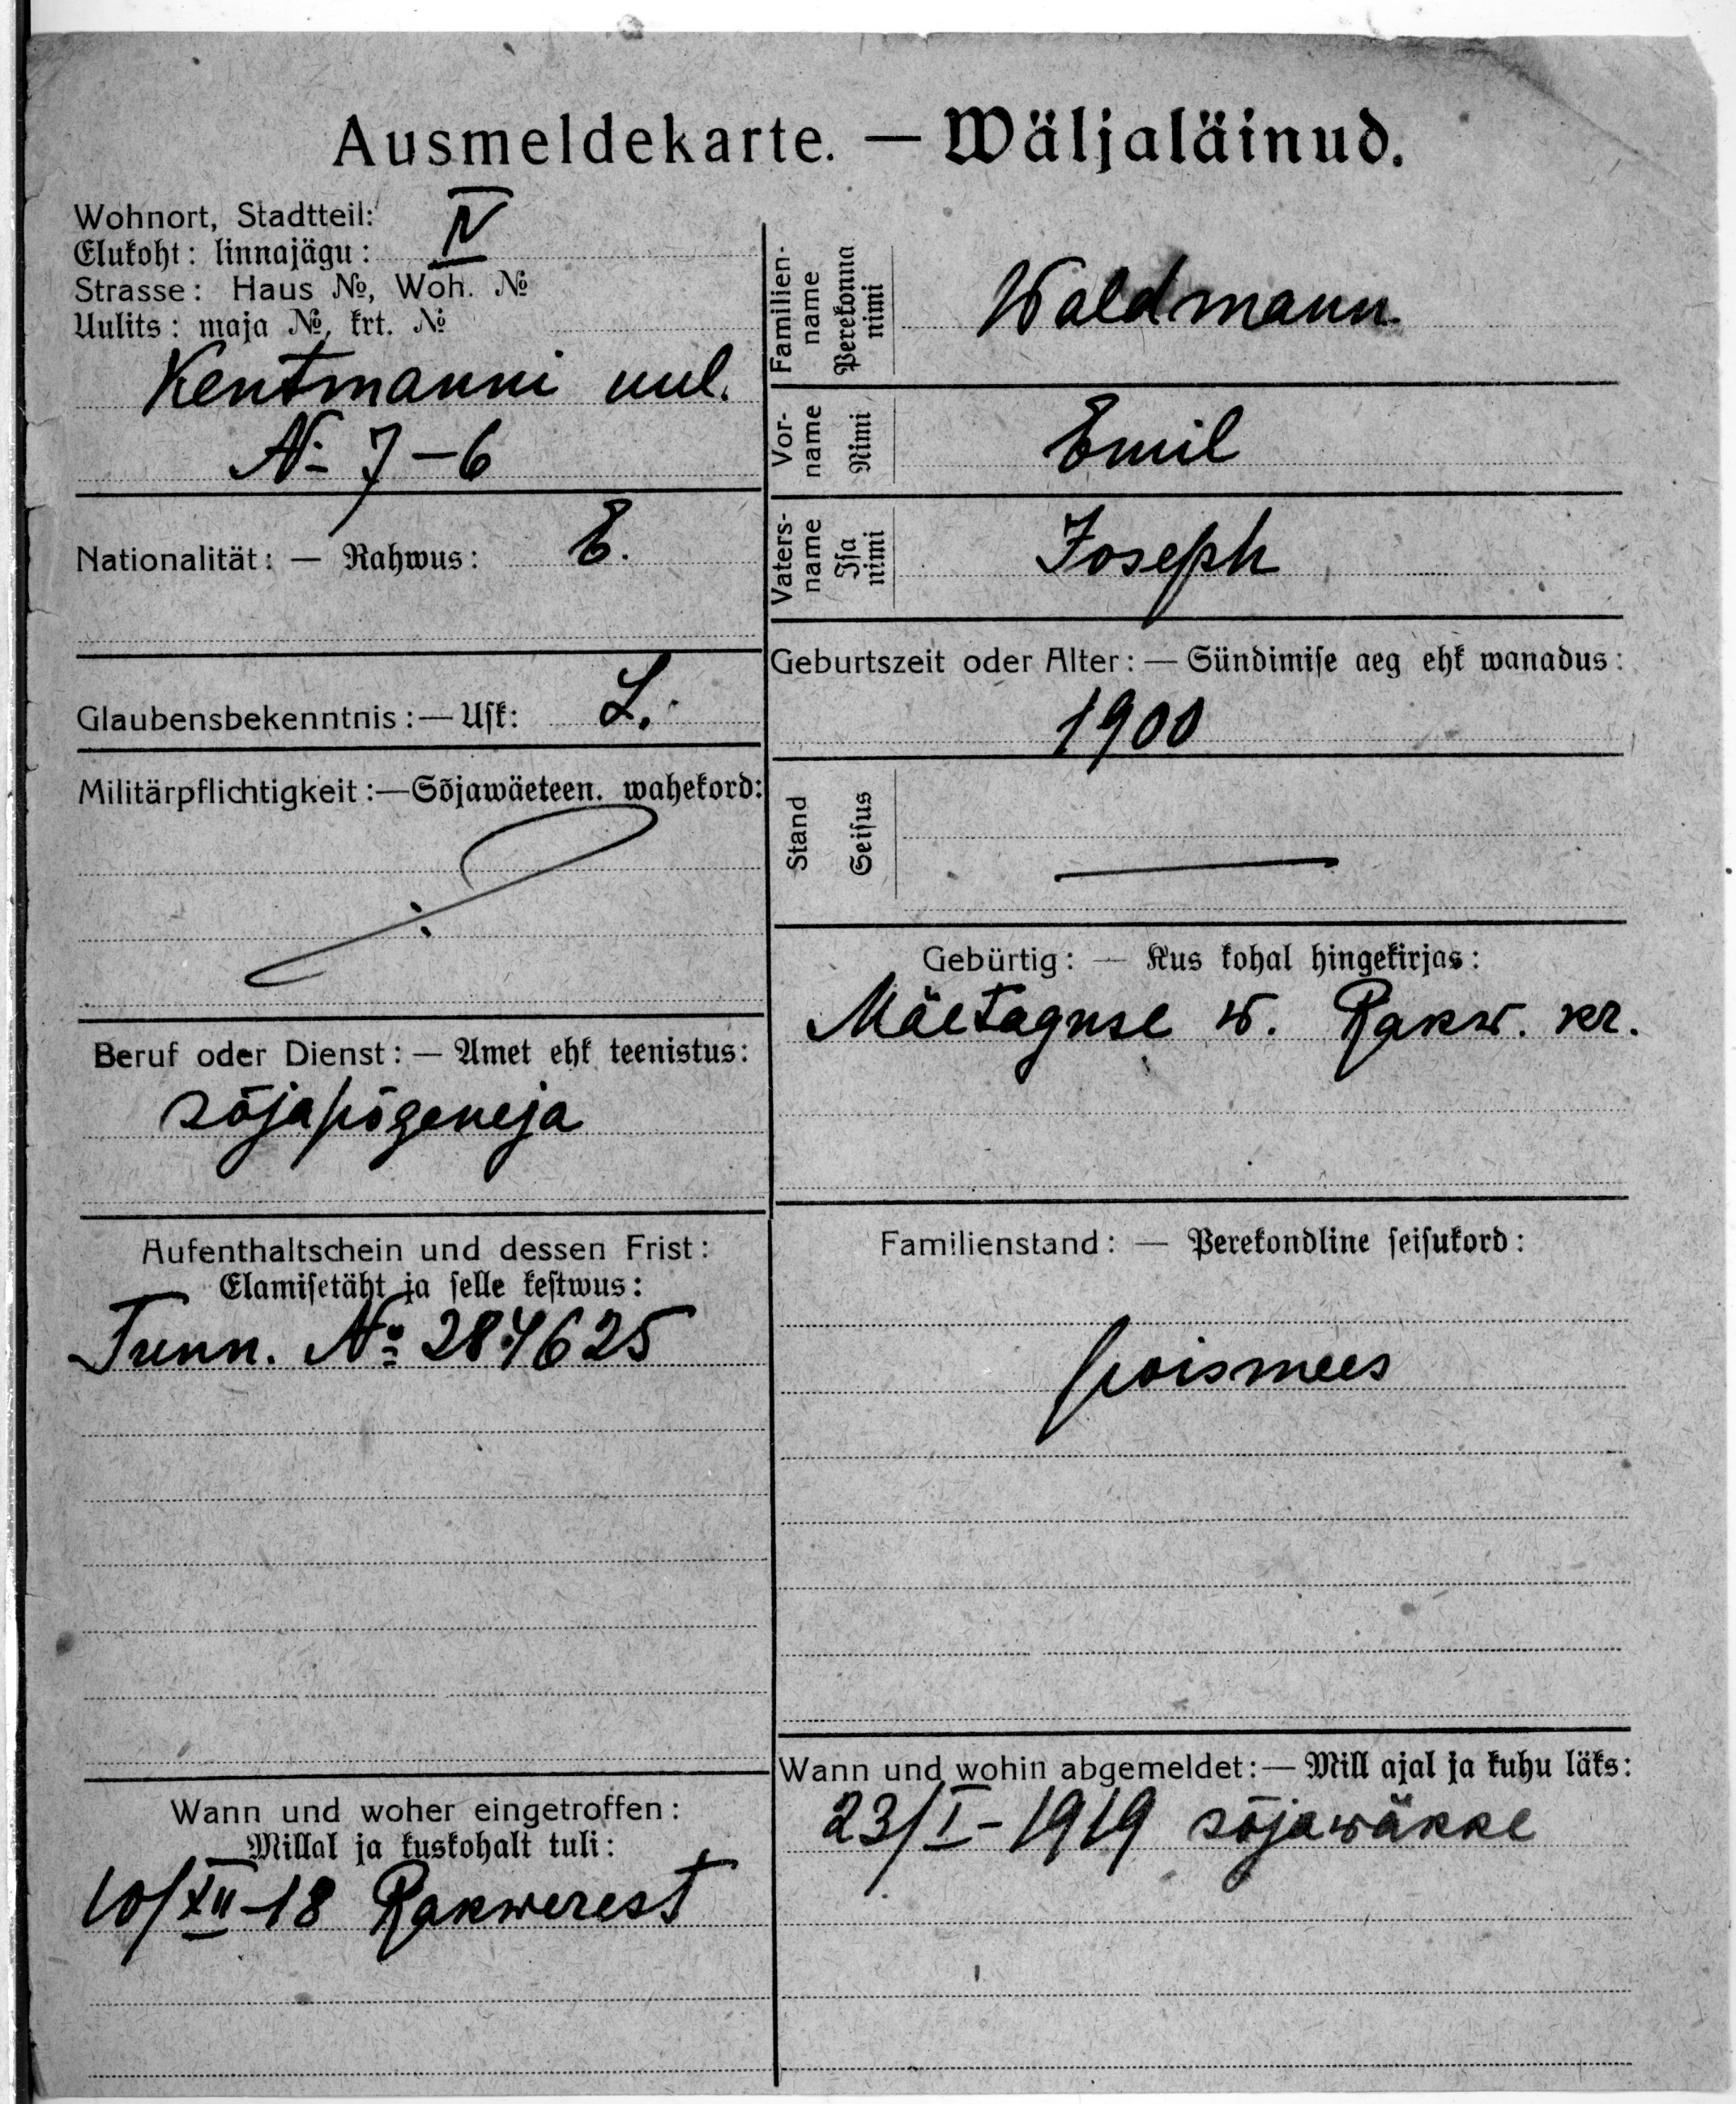 Ausmeldekarte. — Wäljaläinud.
Wohnort, Stadtteil:
Elukoht: linnajägu: IV
Strasse: Haus №, Woh. №
Uulits: maja №, krt. №
Kentmanni uul.
№ 7-6
Nationalität: — Rahwus: E.
Glaubensbekenntnis: — Usk: L.
Militärpflichtigkeit: — Sõjawäeteen. wahekord:
Beruf oder Dienst: — Amet ehk teenistus:
sõjapõgeneja
Aufenthaltschein und dessen Frist:
Elamisetäht ja selle kestwus:
Tunn. № 284625
Wann und woher eingetroffen:
Millal ja kuskohalt tuli:
10/XII-18 Rakwerest
Familien-
name
Perekonna
nimi
Waldmann
Vor-
name
Nimi
Emil
Vaters-
name
Isa
nimi
Joseph
Geburtszeit oder Alter: — Sündimise aeg ehk wanadus:
1900
Stand
Seisus
—
Gebürtig: — Kus kohal hingekirjas:
Mäetaguse w. Rakw. kr.
Familienstand: — Perekondline seisukord:
poismees
Wann und wohin abgemeldet: — Mill ajal ja kuhu läks:
23/I-1919 sõjawäkke